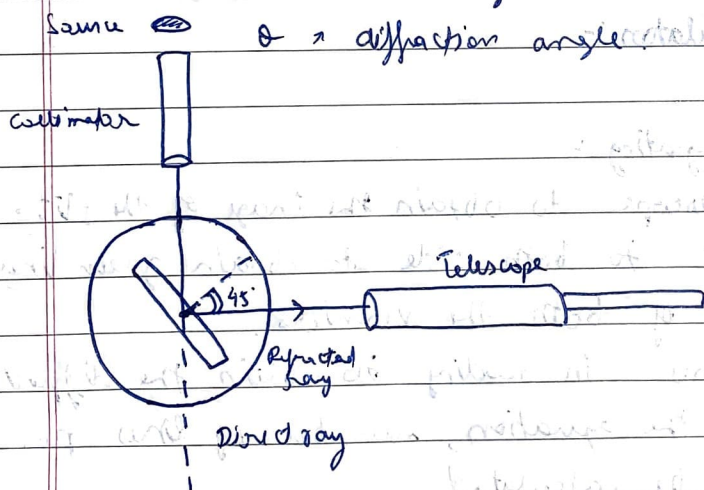 Source
θ → diffraction angle.
Collimator
Telescope
45°
Refracted
ray
Direct ray